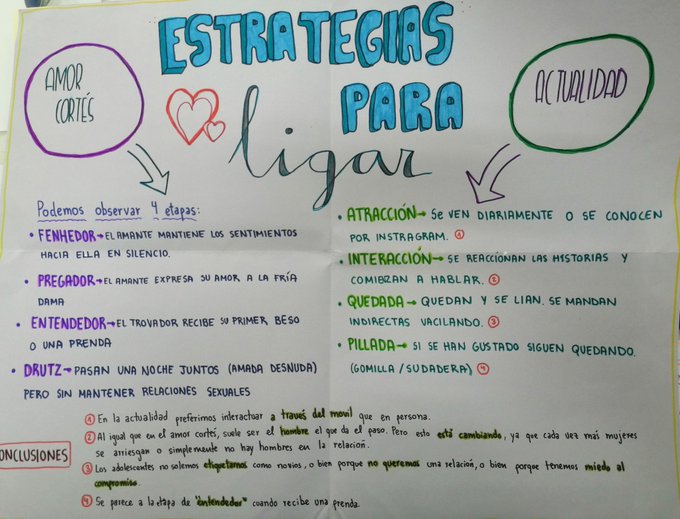 ESTRATEGIAS
PARA
ligar
AMOR
CORTÉS
ACTUALIDAD
Podemos observar 4 etapas:
• FENHEDOR→ EL AMANTE MANTIENE LOS SENTIMIENTOS
HACIA ELLA EN SILENCIO.
• PREGADOR→ EL AMANTE EXPRESA SU AMOR A LA FRÍA
DAMA
• ENTENDEDOR→ EL TROVADOR RECIBE SU PRIMER BESO
O UNA PRENDA
• DRUTZ→ PASAN UNA NOCHE JUNTOS (AMADA DESNUDA)
PERO SIN MANTENER RELACIONES SEXUALES
• ATRACCIÓN→ SE VEN DIARIAMENTE O SE CONOCEN
POR INSTRAGRAM. ①
• INTERACCIÓN→ SE REACCIONAN LAS HISTORIAS Y
COMIENZAN A HABLAR. ②
• QUEDADA→ QUEDAN Y SE LIAN. SE MANDAN
INDIRECTAS VACILANDO. ③
• PILLADA→ SI SE HAN GUSTADO SIGUEN QUEDANDO.
(GOMILLA / SUDADERA) ④
ONCLUSIONES
① En la actualidad preferimos interactuar a través del movil que en persona.
② Al igual que en el amor cortés, suele ser el hombre el que da el paso. Pero esto está cambiando, ya que cada vez más mujeres
se arriesgan o simplemente no hay hombres en la relación.
③ Los adolescentes no solemos etiquetarnos como novios, o bien porque no queremos una relación, o bien porque tenemos miedo al
compromiso.
④ Se parece a la etapa de "entendedor" cuando recibe una prenda.